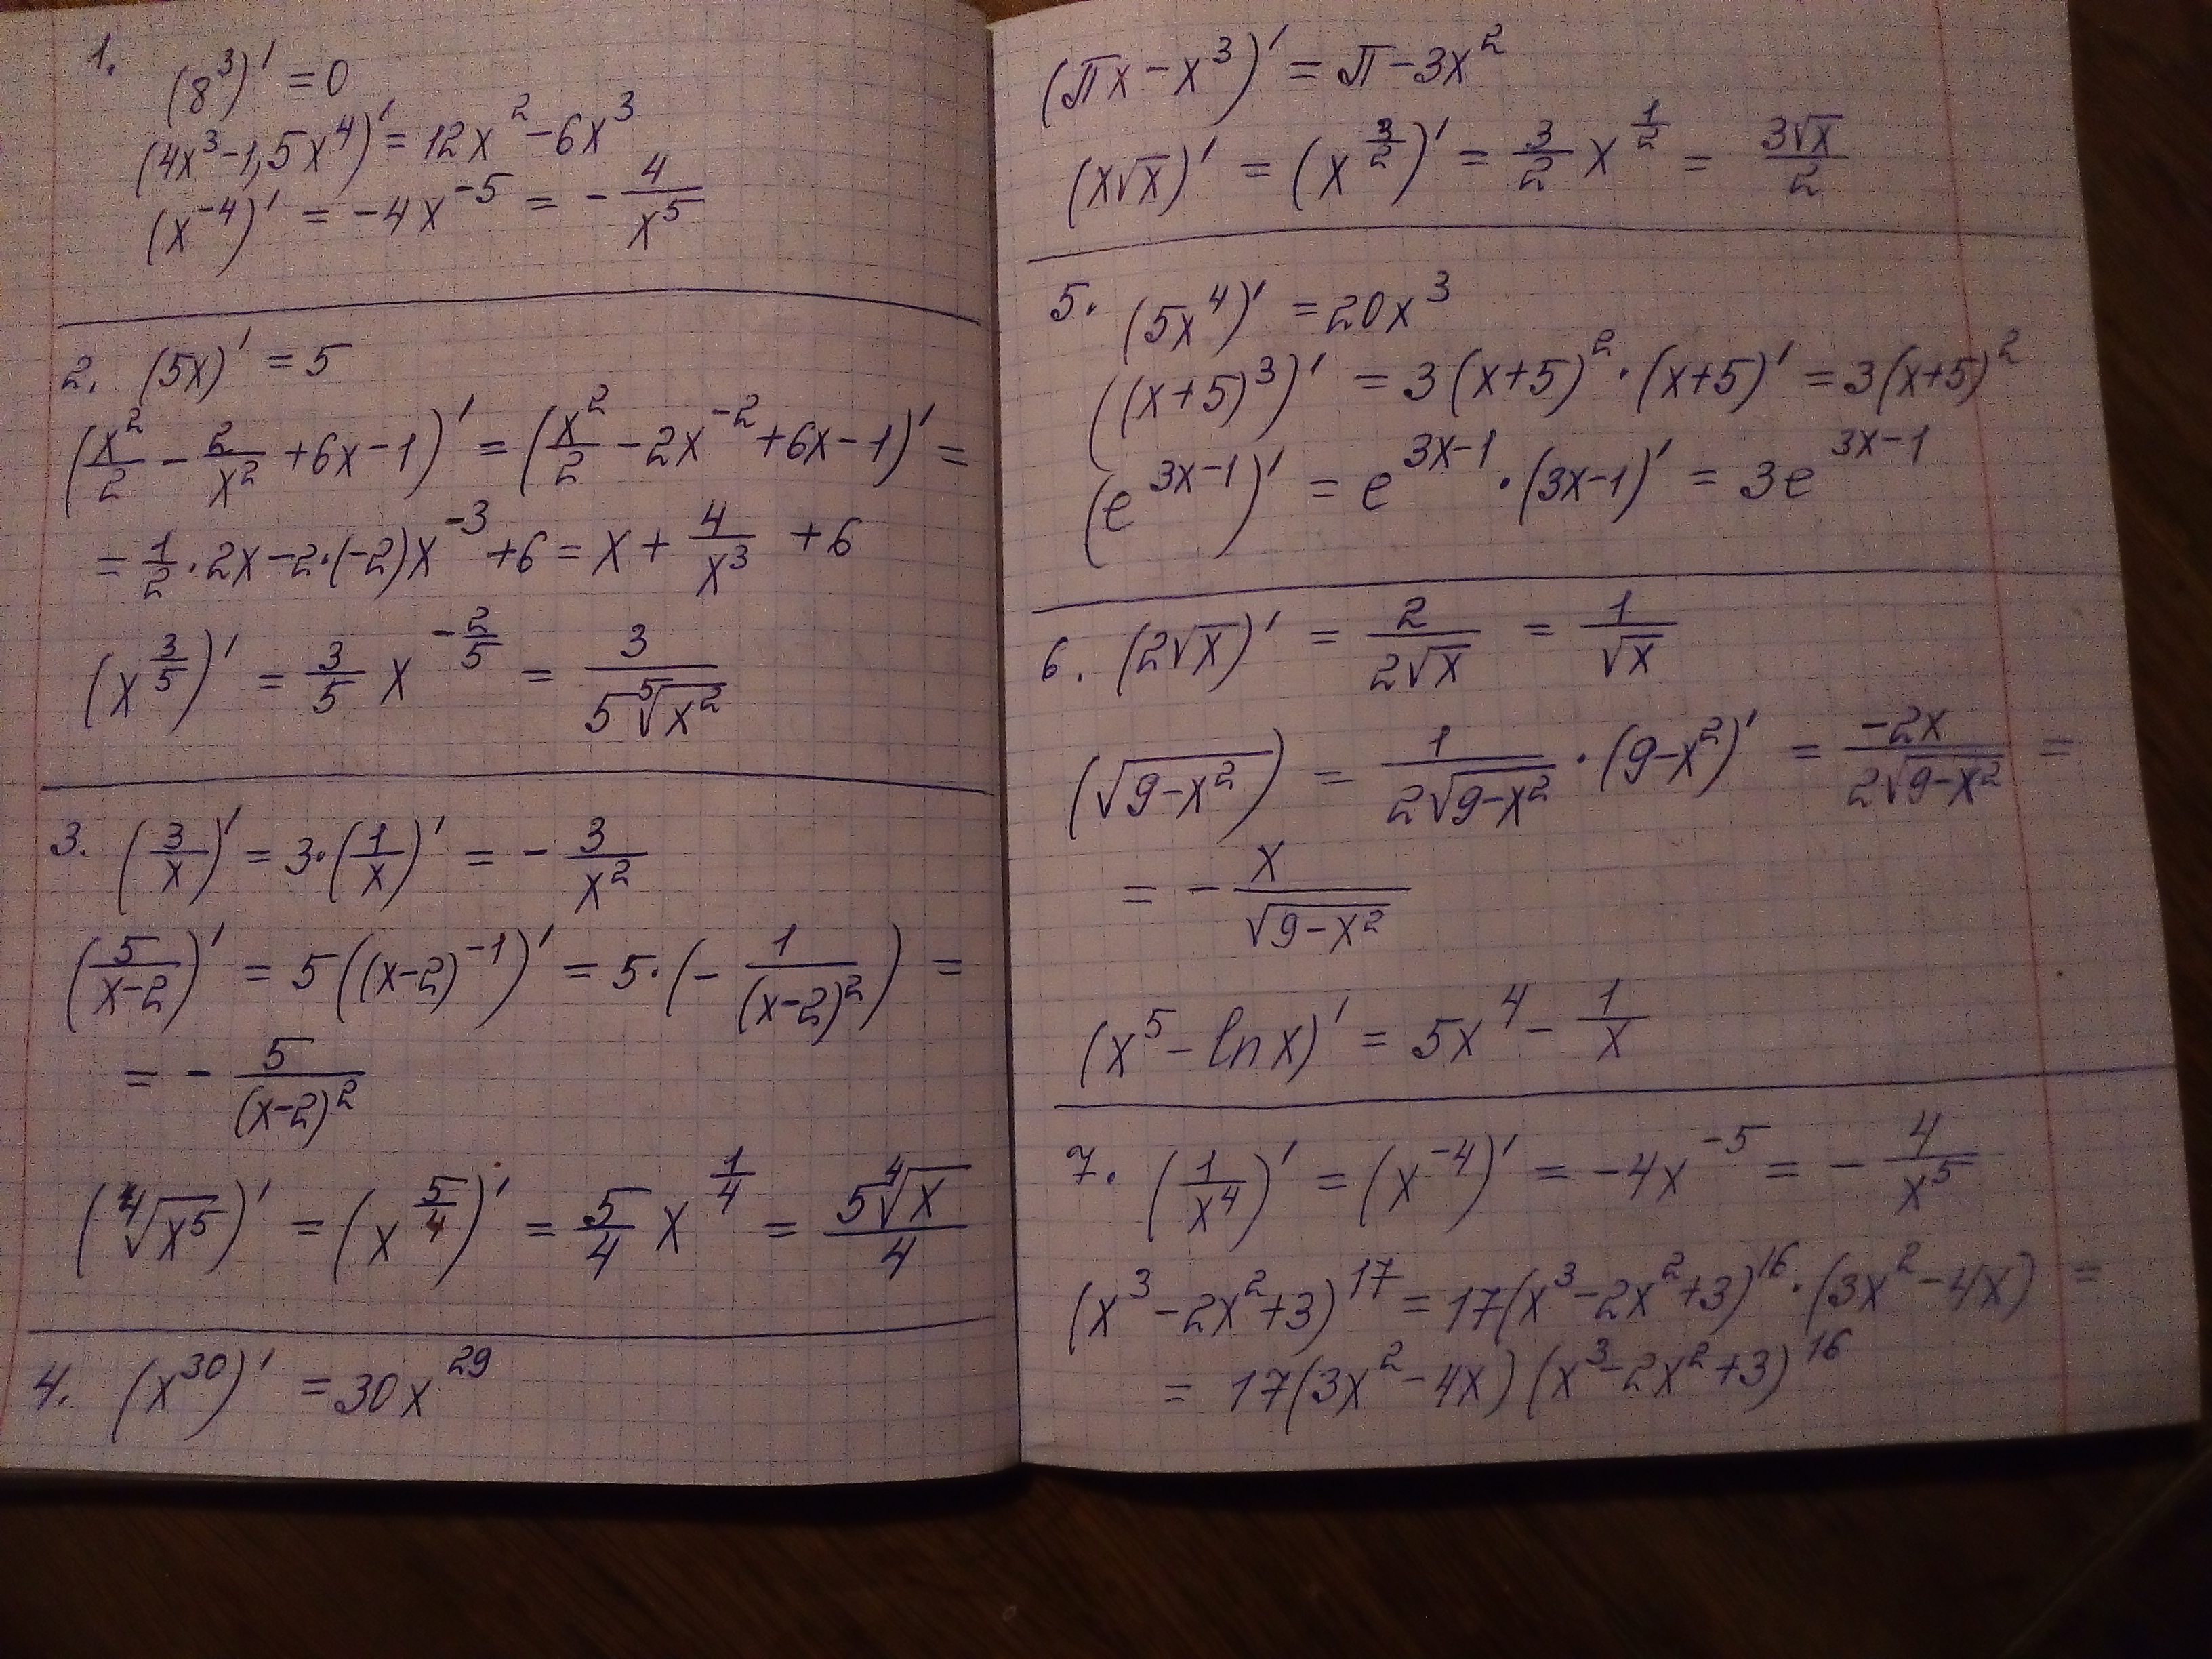 1. (8³)' = 0
(4x³ - 1,5x⁴)' = 12x² - 6x³
(x⁻⁴)' = -4x⁻⁵ = - 4/x⁵
2. (5x)' = 5
(x²/2 - 2/x² + 6x - 1)' = (x²/2 - 2x⁻² + 6x - 1)' =
= 1/2 · 2x - 2·(-2)x⁻³ + 6 = x + 4/x³ + 6
(x^(3/5))' = 3/5 x^(-2/5) = 3/(5⁵√x²)
3. (3/x)' = 3·(1/x)' = - 3/x²
(5/(x-2))' = 5((x-2)⁻¹)' = 5·(- 1/(x-2)²) =
= - 5/(x-2)²
(⁴√x⁵)' = (x^(5/4))' = 5/4 x^(1/4) = 5⁴√x/4
4. (x³⁰)' = 30x²⁹
(πx - x³)' = π - 3x²
(x√x)' = (x^(3/2))' = 3/2 x^(1/2) = 3√x/2
5. (5x⁴)' = 20x³
((x+5)³)' = 3(x+5)² · (x+5)' = 3(x+5)²
(e^(3x-1))' = e^(3x-1) · (3x-1)' = 3e^(3x-1)
6. (2√x)' = 2/(2√x) = 1/√x
(√(9-x²)) = 1/(2√(9-x²)) · (9-x²)' = -2x/(2√(9-x²)) =
= - x/√(9-x²)
(x⁵ - ln x)' = 5x⁴ - 1/x
7. (1/x⁴)' = (x⁻⁴)' = -4x⁻⁵ = - 4/x⁵
(x³ - 2x² + 3)¹⁷ = 17(x³ - 2x² + 3)¹⁶ · (3x² - 4x) =
= 17(3x² - 4x)(x³ - 2x² + 3)¹⁶